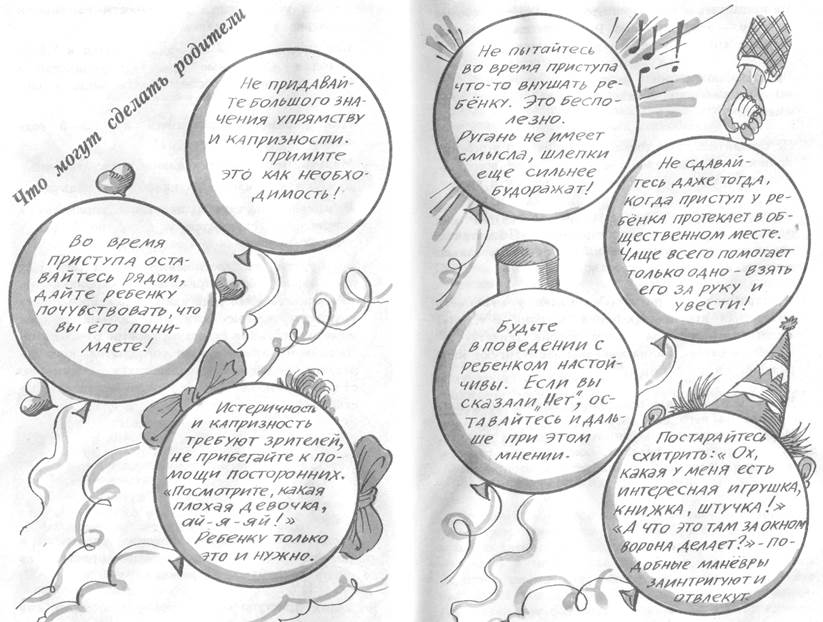 Что могут сделать родители
Не придавай-
те большого зна-
чения упрямству
и капризности.
Примите
это как необхо-
димость!
Во время
приступа оста-
вайтесь рядом,
дайте ребенку
почувствовать, что
вы его пони-
маете!
Истеричность
и капризность
требуют зрителей,
не прибегайте к по-
мощи посторонних.
«Посмотрите, какая
плохая девочка,
ай-я-яй!»
Ребенку только
это и нужно.
Не пытайтесь
во время приступа
что-то внушать ре-
бёнку. Это беспо-
лезно.
Ругань не имеет
смысла, шлепки
еще сильнее
будоражат!
Не сдавай-
тесь даже тогда,
когда приступ у ре-
бёнка протекает в об-
щественном месте.
Чаще всего помогает
только одно – взять
его за руку и
увести!
Будьте
в поведении с
ребенком настой-
чивы. Если вы
сказали „Нет", ос-
тавайтесь и даль-
ше при этом
мнении.
Постарайтесь
схитрить: «Ох,
какая у меня есть
интересная игрушка,
книжка, штучка!»
«А что это там за окном
ворона делает?» – по-
добные манёвры
заинтригуют и
отвлекут.